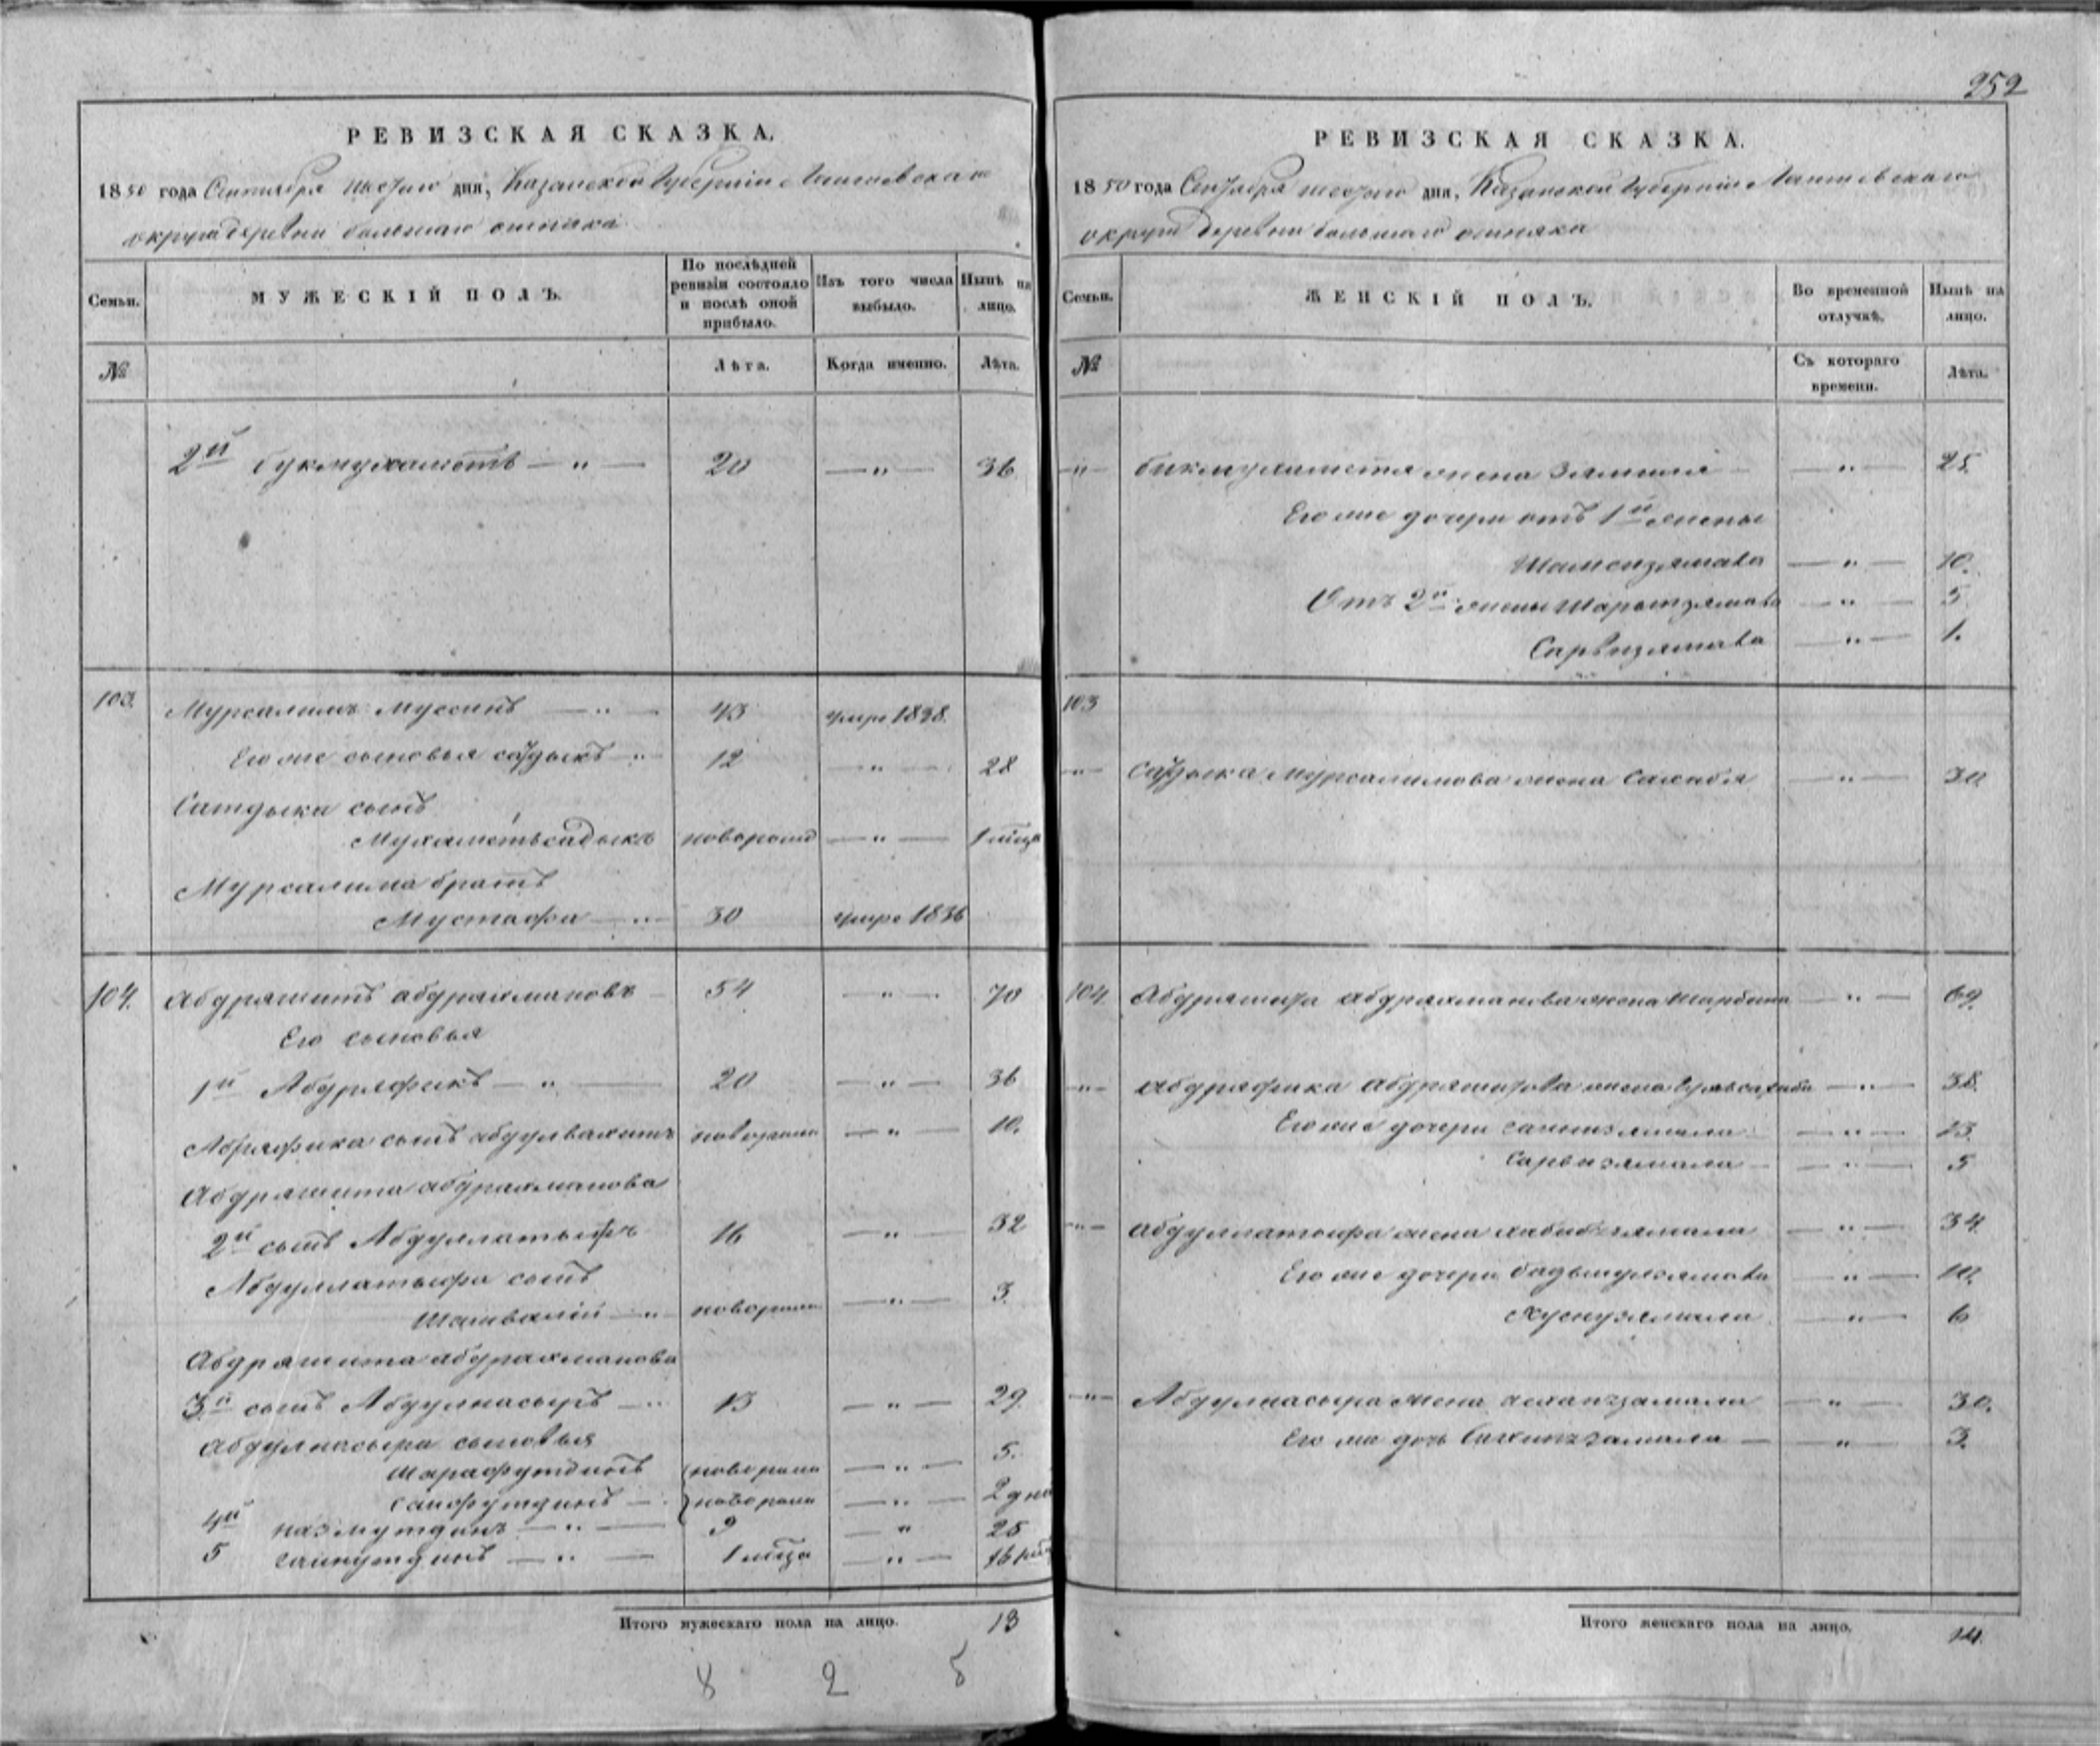 РЕВИЗСКАЯ СКАЗКА.
1850 года Сентября шестаго дня, Казанской Губернии Лаишевскаго
округа деревни большаго
Семьи.
МУЖЕСКІЙ ПОЛЪ.
По послѣдней ревизіи состояло и послѣ оной прибыло.
Изъ того числа выбыло.
Нынѣ на лицо.
№
Лѣта.
Когда именно.
Лѣта.
2й букмухаметъ — " — 20 — " — 36
103. Мурсалимъ Муссинъ — " — 43 умре 1838.
Его же сыновья сатдыкъ — " 12 — " — 28
Сатдыка сынъ
Мухаметьсадыкъ новорожд — " — 1 мца
Мурсалима братъ
Мустафа — " — 30 умре 1836
104. Абдряшитъ абдрахмановъ 54 — " — 70
Его сыновья
1й Абдряфикъ — " — 20 — " — 36
Абдряфика сынъ абдулвахитъ новорожд — " — 10.
Абдряшита абдрахманова
2й сынъ Абдуллатыфъ 16 — " — 32
Абдуллатыфа сынъ
Шаивалій — " новорожд — " — 3.
Абдряшита абдрахманова
3й сынъ Абдулнасыръ — " 13 — " — 29.
Абдулнасыра сыновья
Шарафутдинъ новорожд — " — 5.
Саифутдинъ — новорожд — " — 2 дня
4й назмутдинъ — " — 9 — " 25
5 саинутдинъ — " — 1 мца — " — 16
Итого мужескаго пола на лицо. 13
8 2 5
252
РЕВИЗСКАЯ СКАЗКА.
1850 года Сентября шестаго дня, Казанской Губерніи Лаишевскаго
округа деревни большаго
Семьи.
ЖЕНСКІЙ ПОЛЪ.
Во временной отлучкѣ.
Нынѣ на лицо.
№
Съ котораго времени.
Лѣта.
— " — бикмухаметя жена Зямилія — — " — 25.
Его же дочери отъ 1й жены
Шамсизямала — " — 10.
Отъ 2й жены — " — 5
Сарвизямала — " — 1.
103
— " — сатдыка Мурсалимова жена Сахибя — " — 30
104 Абдряшита абдрахманова жена Шарбана — " — 69.
— " — абдряфика абдряшитова жена — " — 38.
Его же дочери — " — 13
Сарвизямала — — " — 5
— " — абдуллатыфа жена хабибзямала — " — 34.
Его же дочери — " — 10.
Хуснузямала — " — 6
— " — Абдулнасыра жена — " — 30.
Его же дочь — " — 3.
Итого женскаго пола на лицо. 14.